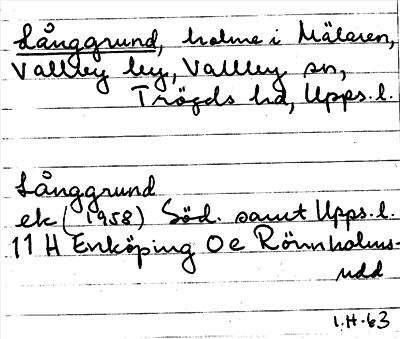 Långgrund, holme i Mälaren,
Vallby by, Vallby sn,
Trögds hd, Upps. l.
Långgrund
ek (1958) Söd. samt Upps. l.
11 H Enköping 0 e Rönnholms-
udd
I.H-63